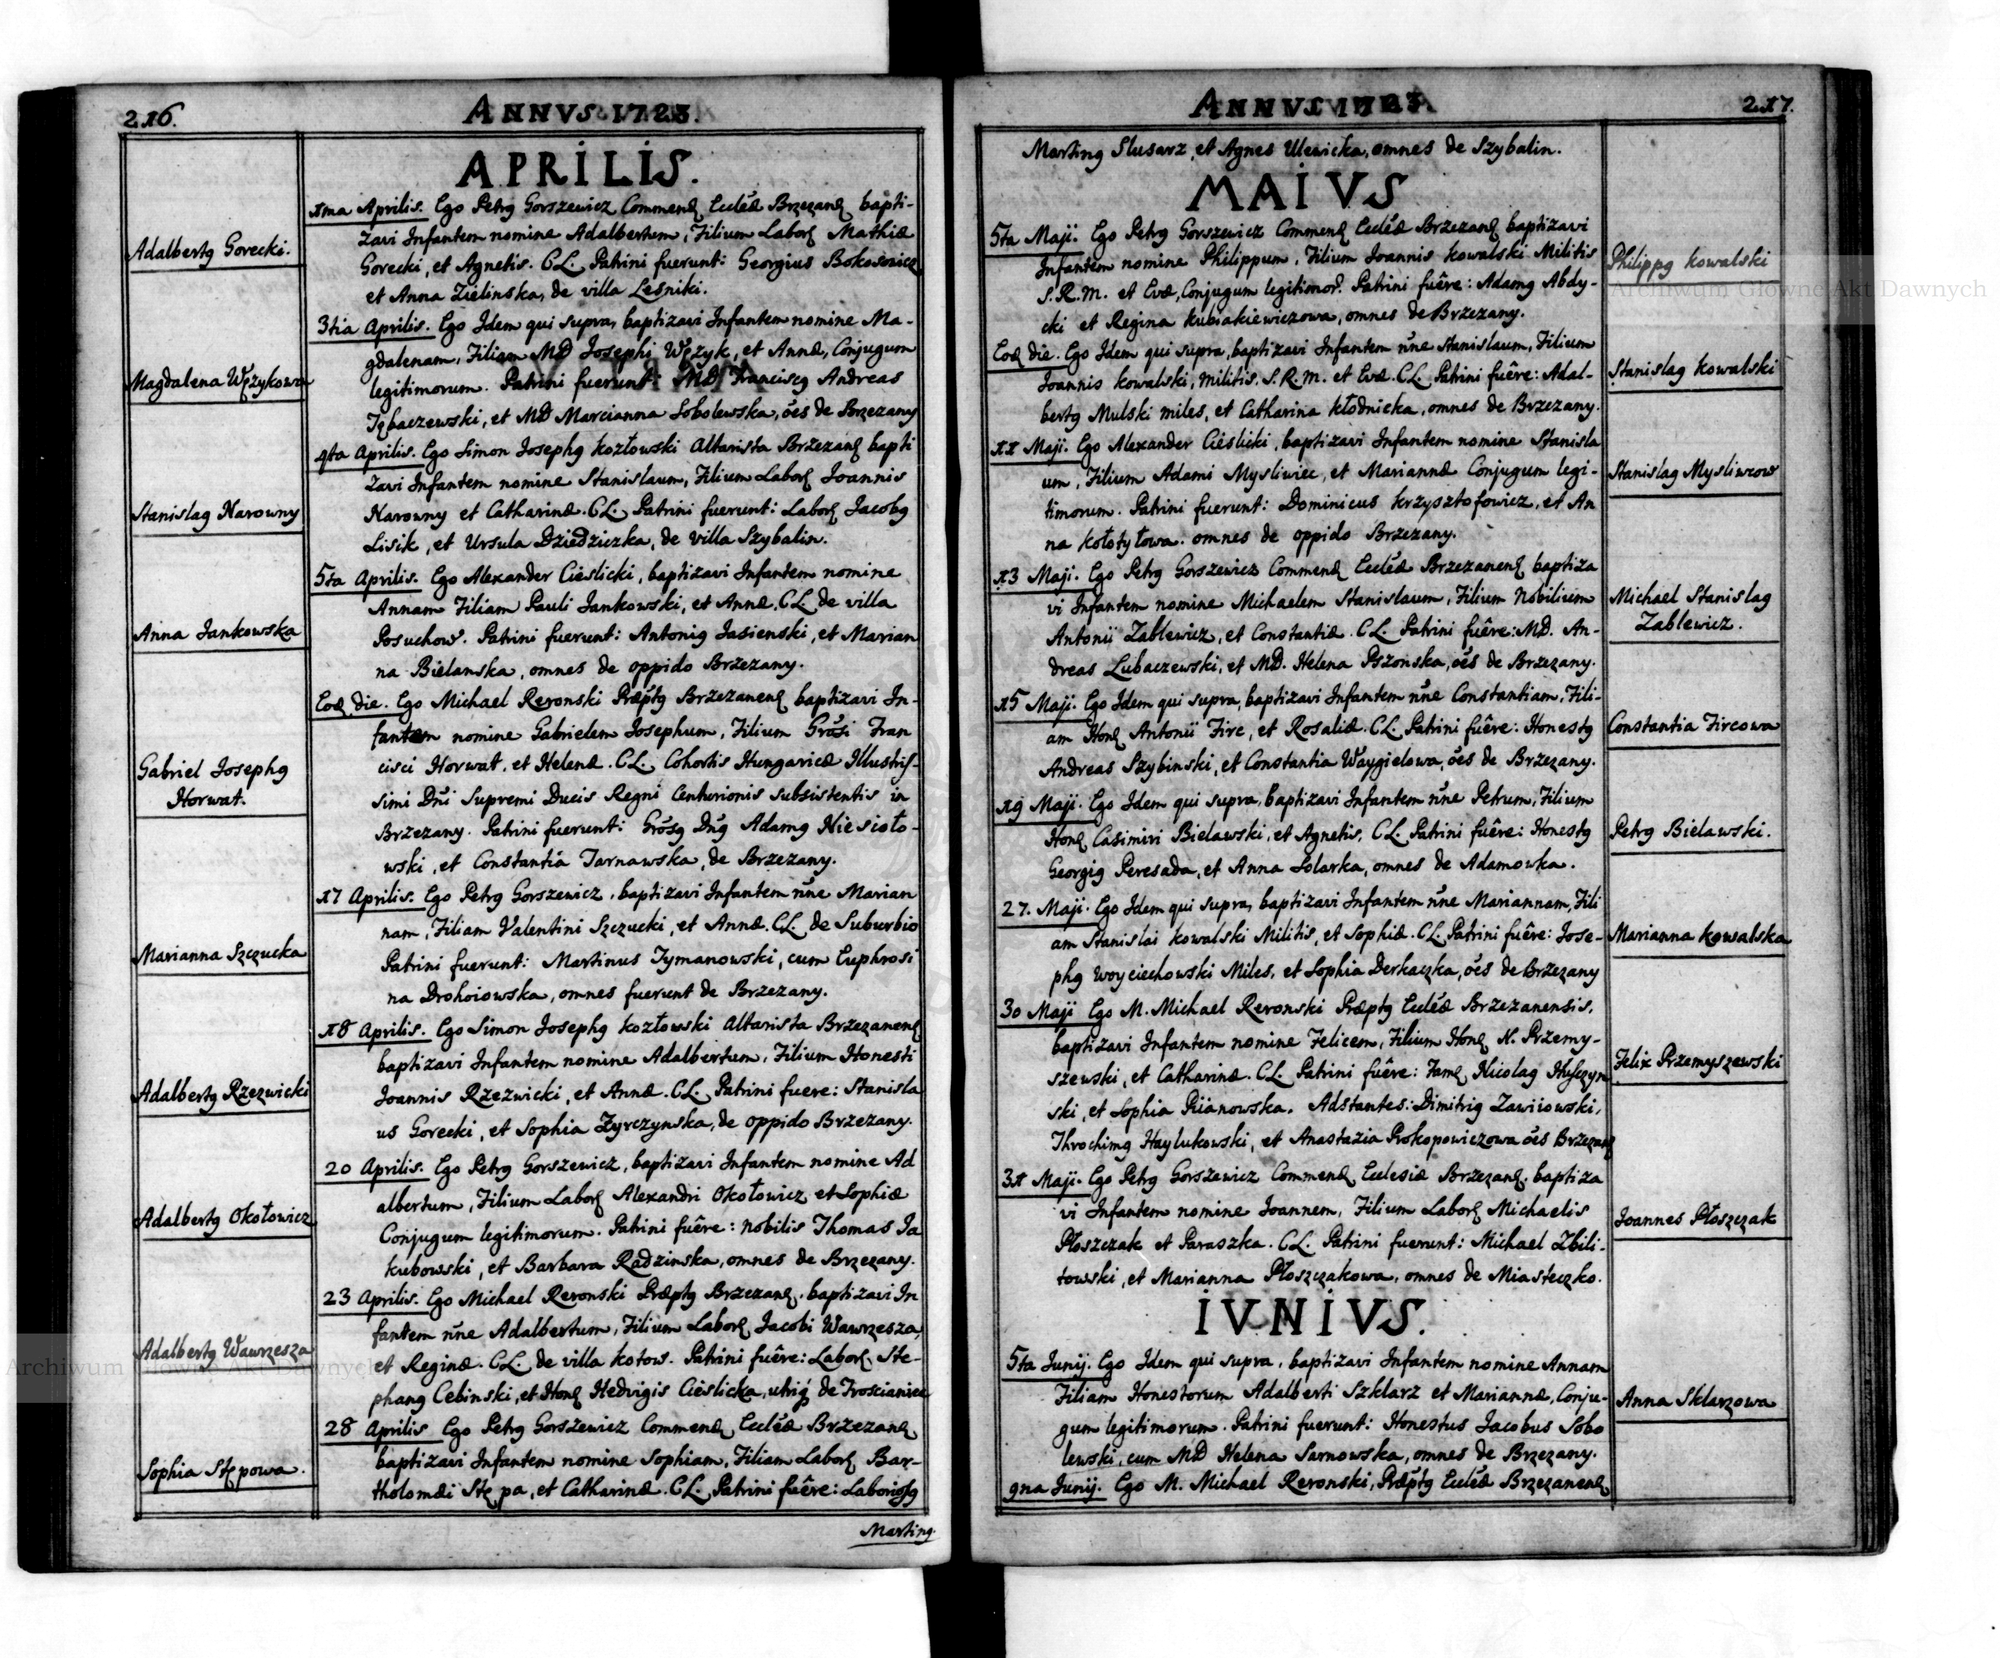 216.
ANNVS 1723.
APRILIS.
Adalbertꝰ Gorecki.
1ma Aprilis. Ego Petrꝰ Gorszewicz Commendꝫ Eccłæ Brzezanꝫ bapti-
zavi Infantem nomine Adalbertum, Filium Laborꝫ Mathiæ
Gorecki, et Agnetis. CL. Patrini fuerunt: Georgius Bokosowicz
et Anna Zielinska, de villa Leśniki.
Magdalena Wężykowa
3tia Aprilis. Ego Idem qui supra, baptizavi Infantem nomine Ma-
gdalenam, Filiam MD Josephi Wężyk, et Annæ, Conjugum
legitimorum. Patrini fuerunt: MD Franciscꝰ Andreas
Tębaczewski, et MD Marcianna Sobolewska, oẽs de Brzezany
Stanislaꝰ Narowny
4ta Aprilis. Ego Simon Josephꝰ Kozłowski Altarista Brzezanꝫ bapti
zavi Infantem nomine Stanislaum, Filium Laborꝫ Joannis
Narowny et Catharinæ. CL. Patrini fuerunt: Laborꝫ Jacobꝰ
Lisik, et Ursula Dziedziczka, de villa Szybalin.
Anna Jankowska
5ta Aprilis. Ego Alexander Cieslicki, baptizavi Infantem nomine
Annam Filiam Pauli Jankowski, et Annæ. CL. de villa
Posuchow. Patrini fuerunt: Antoniꝰ Jasienski, et Marian
na Bielanska, omnes de oppido Brzezany.
Gabriel Josephꝰ
Horwat.
Eoꝺ die. Ego Michael Reronski Præp̃tꝰ Brzezanenꝫ baptizavi In-
fantem nomine Gabrielem Josephum, Filium Grõsi Fran
cisci Horwat, et Helenæ. CL. Cohortis Hungaricæ Illustris-
simi Dñi Supremi Ducis Regni Centurionis subsistentis in
Brzezany. Patrini fuerunt: Grõsꝰ Dñꝰ Adamꝰ Niesioło-
wski, et Constantia Tarnawska, de Brzezany.
Marianna Szczucka
17 Aprilis. Ego Petrꝰ Gorszewicz, baptizavi Infantem nõne Marian
nam, Filiam Valentini Szczucki, et Annæ. CL. de Suburbio
Patrini fuerunt: Martinus Tymanowski, cum Euphrosi
na Drohoiowska, omnes fuerunt de Brzezany.
Adalbertꝰ Rzezwicki
18 Aprilis. Ego Simon Josephꝰ Kozłowski Altarista Brzezanenꝫ
baptizavi Infantem nomine Adalbertum, Filium Honesti
Joannis Rzezwicki, et Annæ. CL. Patrini fuere: Stanisla
us Gorecki, et Sophia Zyrczynska, de oppido Brzezany.
Adalbertꝰ Okołowicz
20 Aprilis. Ego Petrꝰ Gorszewicz, baptizavi Infantem nomine Ad
albertum, Filium Laborꝫ Alexandri Okołowicz et Sophiæ
Conjugum legitimorum. Patrini fuêre: nobilis Thomas Ja
kubowski, et Barbara Radzinska, omnes de Brzezany.
Adalbertꝰ Wawrzesza
23 Aprilis. Ego Michael Reronski Præptꝰ Brzezanꝫ. baptizavi In
fantem nõne Adalbertum, Filium Laborꝫ Jacobi Wawrzesza,
et Reginæ. CL. de villa Kotow. Patrini fuêre: Laborꝫ Ste-
phanꝰ Cebinski, et Honꝫ Hedvigis Cieslicka, utriꝗ de Troscianiec
Sophia Stępowa.
28 Aprilis Ego Petrꝰ Gorszewicz Commendꝫ Eccłæ Brzezanꝫ
baptizavi Infantem nomine Sophiam, Filiam Laborꝫ Bar-
tholomæi Stępa, et Catharinæ. CL. Patrini fuêre: Laboriosꝰ
Martinꝰ
217.
ANNVS 1723.
Martinꝰ Slusarz, et Agnes Ulewicka, omnes de Szybalin.
MAIVS
Philippꝰ Kowalski
5ta Maji. Ego Petrꝰ Gorszewicz Commendꝫ Eccłæ Brzezanꝫ baptizavi
Infantem nomine Philippum, Filium Joannis Kowalski Militis
S.R.M. et Evæ, Conjugum legitimorꝫ. Patrini fuêre: Adamꝰ Abdy-
cki et Regina Kubiakiewiczowa, omnes de Brzezany.
Stanislaꝰ Kowalski
Eoꝺ die. Ego Idem qui supra, baptizavi Infantem nõne Stanislaum, Filium
Joannis Kowalski, militis. S.R.M. et Evæ. CL. Patrini fuêre: Adal-
bertꝰ Mulski miles, et Catharina Kłodnicka, omnes de Brzezany.
Stanislaꝰ Mysliwcow
11 Maji. Ego Alexander Cieslicki, baptizavi Infantem nomine Stanisla
um, Filium Adami Mysliwiec, et Mariannæ Conjugum legi-
timorum. Patrini fuerunt: Dominicus Krzysztofowicz, et An
na Kołotyłowa. omnes de oppido Brzezany.
Michael Stanislaꝰ
Zablewicz.
13 Maji. Ego Petrꝰ Gorszewicz Commendꝫ Eccłæ Brzezanenꝫ baptiza
vi Infantem nomine Michaelem Stanislaum, Filium Nobilium
Antonii Zablewicz, et Constantiæ. CL. Patrini fuêre: MD. An-
dreas Lubaczewski, et MD. Helena Pszonska, oẽs de Brzezany.
Constantia Fircowa
15 Maji. Ego Idem qui supra, baptizavi Infantem nõne Constantiam, Fili-
am Honꝫ Antonii Firc, et Rosaliæ. CL. Patrini fuêre: Honestꝰ
Andreas Szybinski, et Constantia Waygielowa, oẽs de Brzezany.
Petrꝰ Bielawski.
19 Maji. Ego Idem qui supra, baptizavi Infantem nõne Petrum, Filium
Honꝫ Casimiri Bielawski, et Agnetis, CL. Patrini fuêre: Honestꝰ
Georgiꝰ Peresada, et Anna Solarka, omnes de Adamowka.
Marianna Kowalska
27. Maji. Ego Idem qui supra, baptizavi Infantem nõne Mariannam, Fili
am Stanislai Kowalski Militis, et Sophiæ. CL. Patrini fuêre: Jose-
phꝰ Woyciechowski Miles, et Sophia Derkaczka, oẽs de Brzezany
Felix Przemyszewski
30 Maji Ego M. Michael Reronski Præptꝰ Eccłæ Brzezanensis,
baptizavi Infantem nomine Felicem, Filium Honꝫ N. Przemy-
szewski, et Catharinæ. CL. Patrini fuêre: Famꝫ Nicolaꝰ
ski, et Sophia Piianowska. Adstantes: Dimitriꝰ Zawiiowski,
Throchimꝰ Haylukowski, et Anastazia Prokopowiczowa oẽs Brzezanꝫ
Joannes Płoszczak
31 Maji. Ego Petrꝰ Gorszewicz Commendꝫ Ecclesiæ Brzezanꝫ. baptiza
vi Infantem nomine Joannem, Filium Laborꝫ Michaelis
Płoszczak et Paraszka. CL. Patrini fuerunt: Michael Zbili-
towski, et Marianna Płoszczakowa, omnes de Miasteczko.
IVNIVS.
Anna Sklarzowa
5ta Junij. Ego Idem qui supra, baptizavi Infantem nomine Annam
Filiam Honestorum Adalberti Szklarz et Mariannæ, Conju-
gum legitimorum. Patrini fuerunt: Honestus Jacobus Sobo
lewski, cum MD Helena Sarnowska, omnes de Brzezany.
9na Junij. Ego M. Michael Reronski, Præptꝰ Eccłæ Brzezanenꝫ
Archiwum Główne Akt Dawnych
Archiwum Główne Akt Dawnych